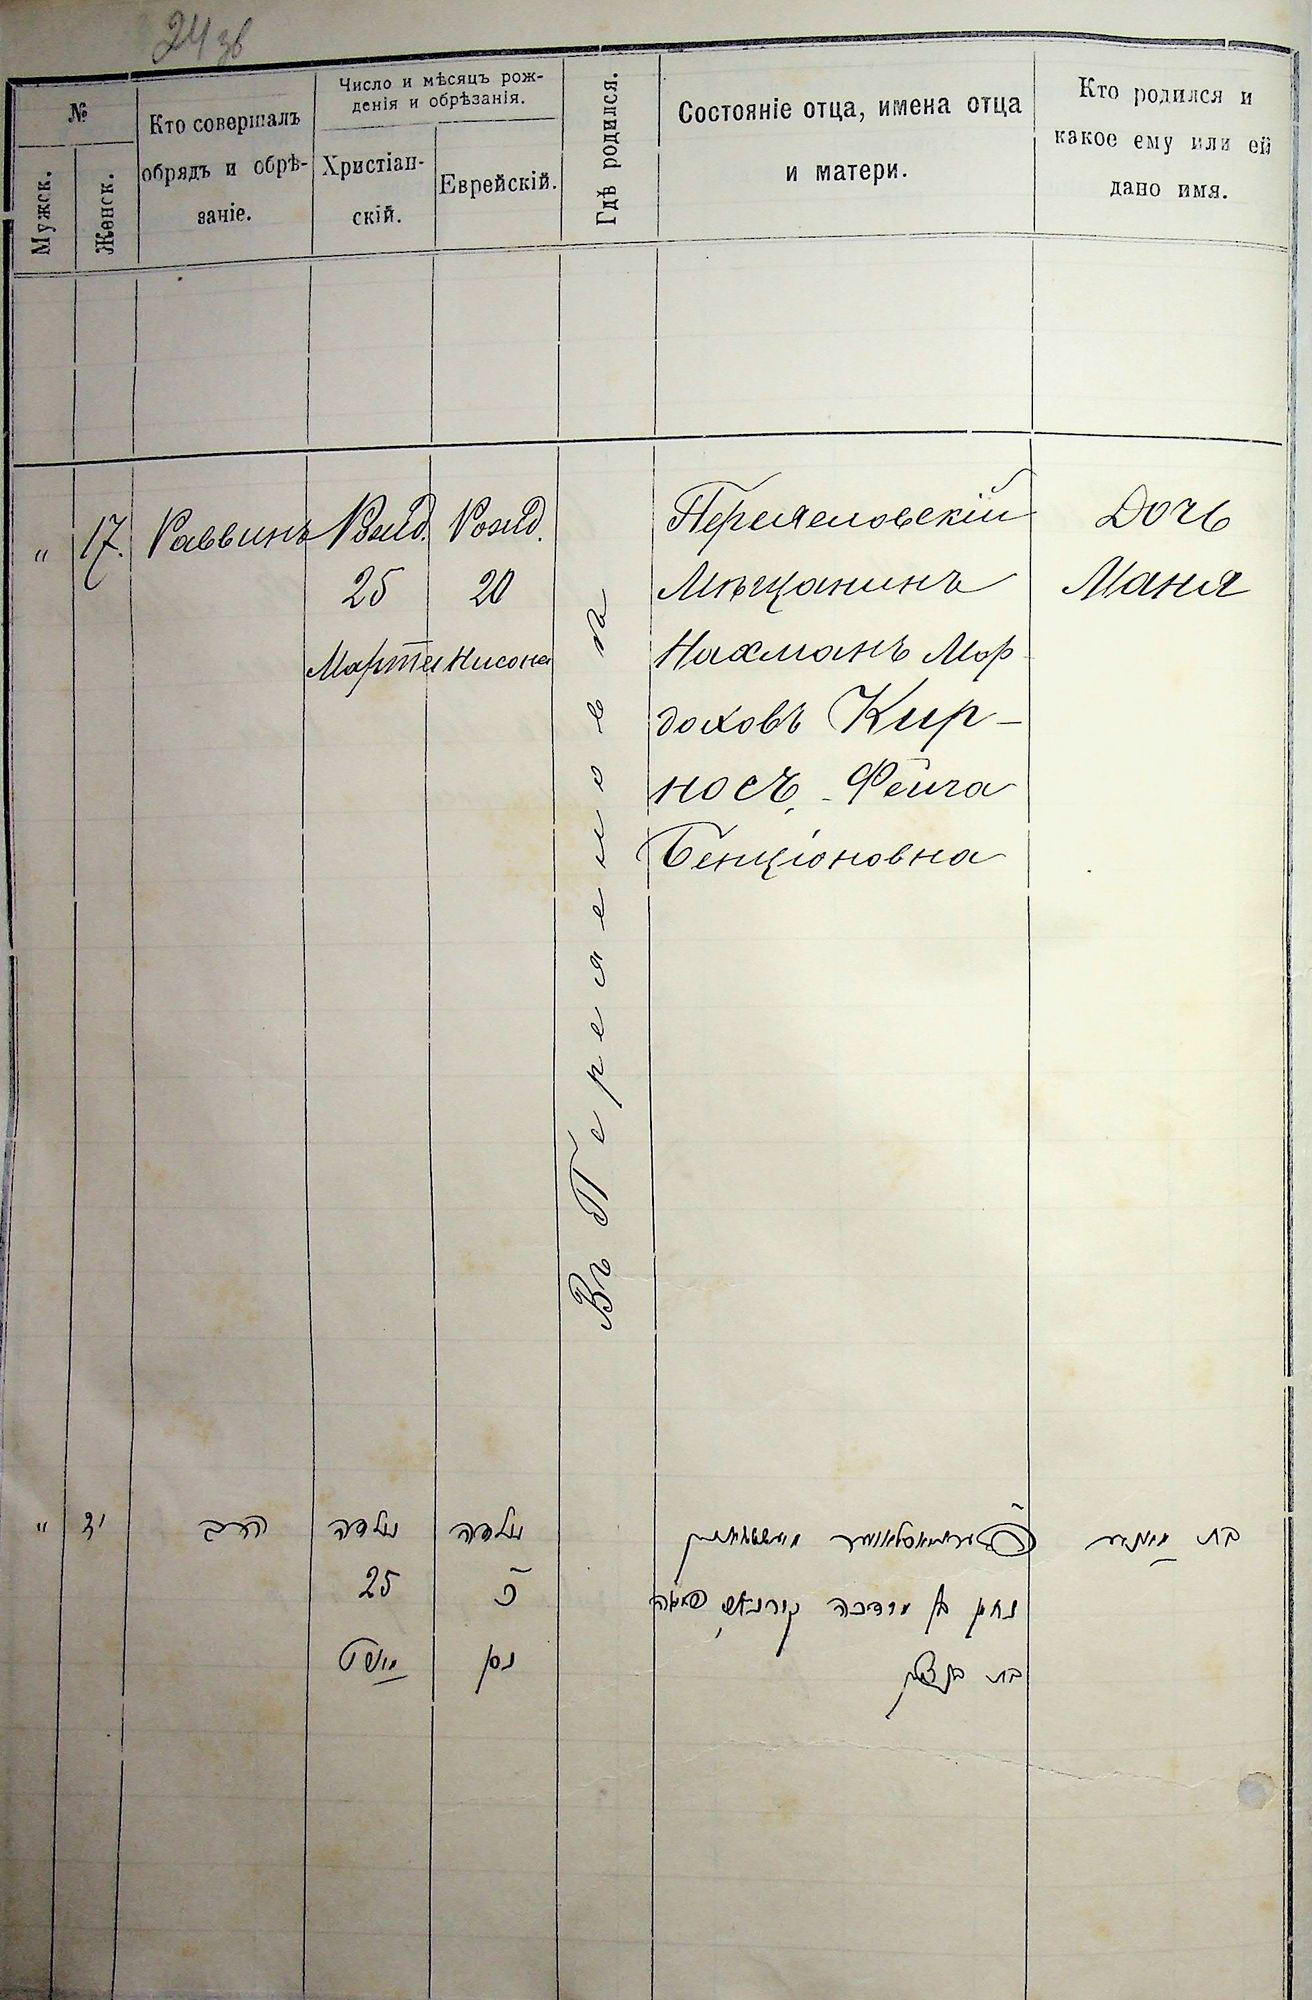 24 зв
№
Мужск.
Женск.
Кто совершалъ
обрядъ и обрѣ-
заніе.
Число и мѣсяцъ рож-
денія и обрѣзанія.
Христіан-
скій.
Еврейскій.
Гдѣ родился.
Состояніе отца, имена отца
и матери.
Кто родился и
какое ему или ей
дано имя.
" 17. Раввинъ
Рожд.
25
Марта
Рожд.
20
Нисона
Въ Переяеловѣ
Переяеловскій
Мѣщанинъ
Нахманъ Мор
доховъ Кир-
носъ, - Фейга
Бенціоновна
Дочь
Маня
" יז
הרב
נולדה
25
נולדה
כ
ניסן
נחמן בן מרדכה קירנאס, פייגה
בת בן ציון
בת